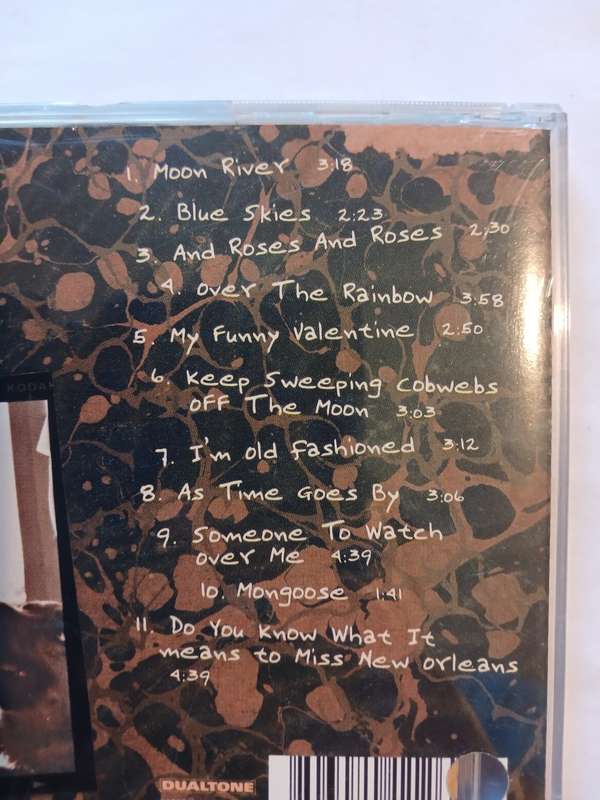 1. Moon River 3:18
2. Blue Skies 2:23
3. And Roses And Roses 2:30
4. Over The Rainbow 3:58
5. My Funny Valentine 2:50
6. Keep Sweeping Cobwebs
OFF The Moon 3:03
7. I'm Old Fashioned 3:12
8. As Time Goes By 3:06
9. Someone To Watch
Over Me 4:39
10. Mongoose 1:41
11. Do You Know What It
means to Miss New Orleans
4:39
KODAK
DUALTONE